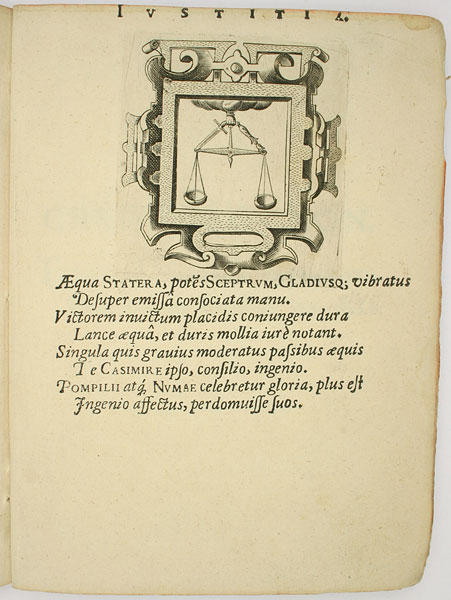 IVSTITIA.
Æqua STATERA, potẽs SCEPTRVM, GLADIVSQ; vibratus
Desuper emissâ consociata manu.
Victorem inuictum placidis coniungere dura
Lance æquâ, et duris mollia iurè notant.
Singula quis grauius moderatus passibus æquis
Te CASIMIRE ipso, consilio, ingenio.
POMPILII atq́, NVMAE celebretur gloria, plus est
Ingenio affectus, perdomuisse suos.